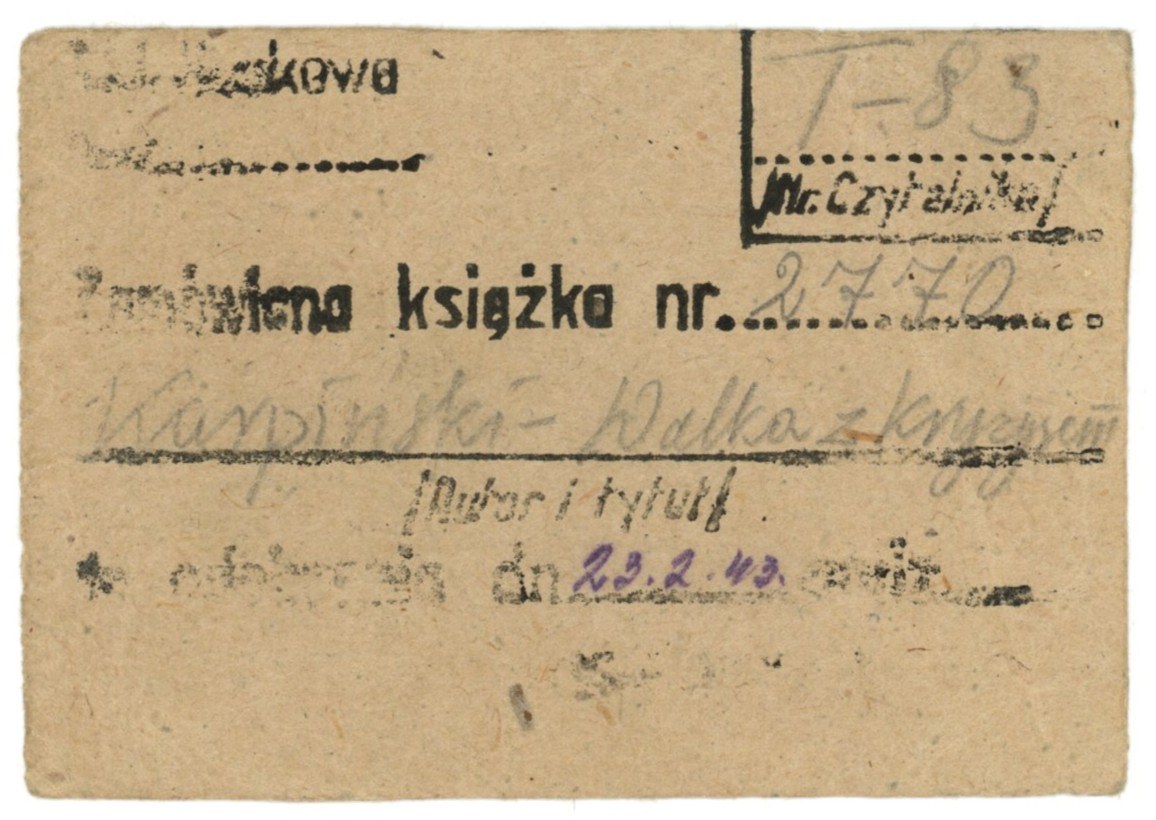 T-83
/Nr. Czytelnika/
Zamówiona książka nr. 2770
Karpiński - Walka z kryzysem
/Autor i tytuł/
dn 23.2.43.